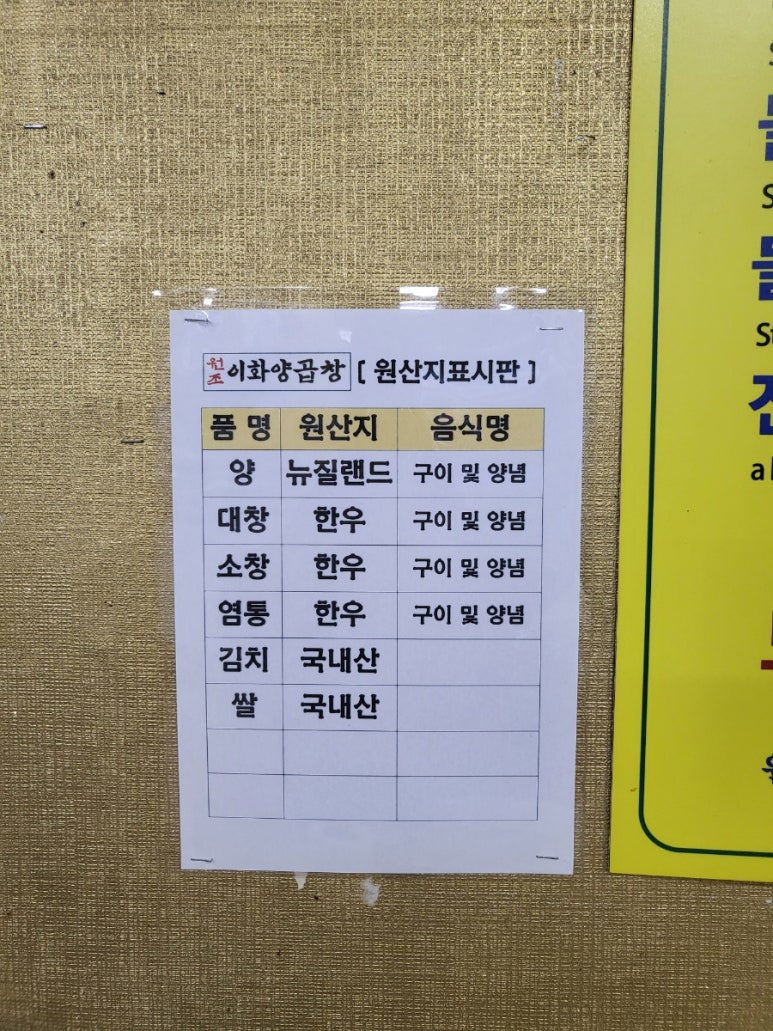 원조 이화양곱창 [ 원산지표시판 ]
품 명 원산지 음식명
양 뉴질랜드 구이 및 양념
대창 한우 구이 및 양념
소창 한우 구이 및 양념
염통 한우 구이 및 양념
김치 국내산
쌀 국내산